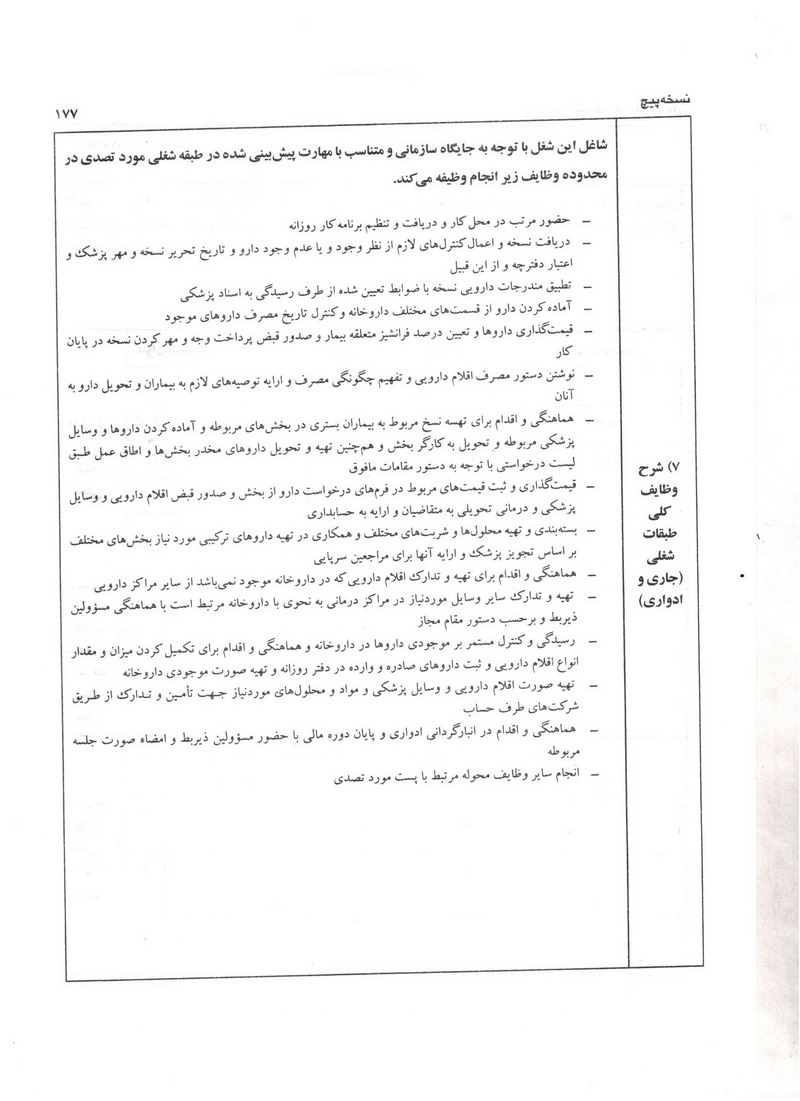 نسخه‌پیچ
۱۷۷
شاغل این شغل با توجه به جایگاه سازمانی و متناسب با مهارت پیش‌بینی شده در طبقه شغلی مورد تصدی در
محدوده وظایف زیر انجام وظیفه می‌کند.
– حضور مرتب در محل کار و دریافت و تنظیم برنامه کار روزانه
– دریافت نسخه و اعمال کنترل‌های لازم از نظر وجود و یا عدم وجود دارو و تاریخ تحریر نسخه و مهر پزشک و
اعتبار دفترچه و از این قبیل
– تطبیق مندرجات دارویی نسخه با ضوابط تعیین شده از طرف رسیدگی به اسناد پزشکی
– آماده کردن دارو از قسمت‌های مختلف داروخانه و کنترل تاریخ مصرف داروهای موجود
– قیمت‌گذاری داروها و تعیین درصد فرانشیز متعلقه بیمار و صدور قبض پرداخت وجه و مهر کردن نسخه در پایان
کار
– نوشتن دستور مصرف اقلام دارویی و تفهیم چگونگی مصرف و ارایه توصیه‌های لازم به بیماران و تحویل دارو به
آنان
– هماهنگی و اقدام برای تهسه نسخ مربوط به بیماران بستری در بخش‌های مربوطه و آماده کردن داروها و وسایل
پزشکی مربوطه و تحویل به کارگر بخش و هم‌چنین تهیه و تحویل داروهای مخدر بخش‌ها و اطاق عمل طبق
لیست درخواستی با توجه به دستور مقامات مافوق
– قیمت‌گذاری و ثبت قیمت‌های مربوط در فرم‌های درخواست دارو از بخش و صدور قبض اقلام دارویی و وسایل
پزشکی و درمانی تحویلی به متقاضیان و ارایه به حسابداری
– بسته‌بندی و تهیه محلول‌ها و شربت‌های مختلف و همکاری در تهیه داروهای ترکیبی مورد نیاز بخش‌های مختلف
بر اساس تجویز پزشک و ارایه آنها برای مراجعین سرپایی
– هماهنگی و اقدام برای تهیه و تدارک اقلام دارویی که در داروخانه موجود نمی‌باشد از سایر مراکز دارویی
– تهیه و تدارک سایر وسایل موردنیاز در مراکز درمانی به نحوی با داروخانه مرتبط است با هماهنگی مسؤولین
ذیربط و برحسب دستور مقام مجاز
– رسیدگی و کنترل مستمر بر موجودی داروها در داروخانه و هماهنگی و اقدام برای تکمیل کردن میزان و مقدار
انواع اقلام دارویی و ثبت داروهای صادره و وارده در دفتر روزانه و تهیه صورت موجودی داروخانه
– تهیه صورت اقلام دارویی و وسایل پزشکی و مواد و محلول‌های موردنیاز جهت تأمین و تدارک از طریق
شرکت‌های طرف حساب
– هماهنگی و اقدام در انبارگردانی ادواری و پایان دوره مالی با حضور مسؤولین ذیربط و امضاء صورت جلسه
مربوطه
– انجام سایر وظایف محوله مرتبط با پست مورد تصدی
۷) شرح
وظایف
کلی
طبقات
شغلی
(جاری و
ادواری)